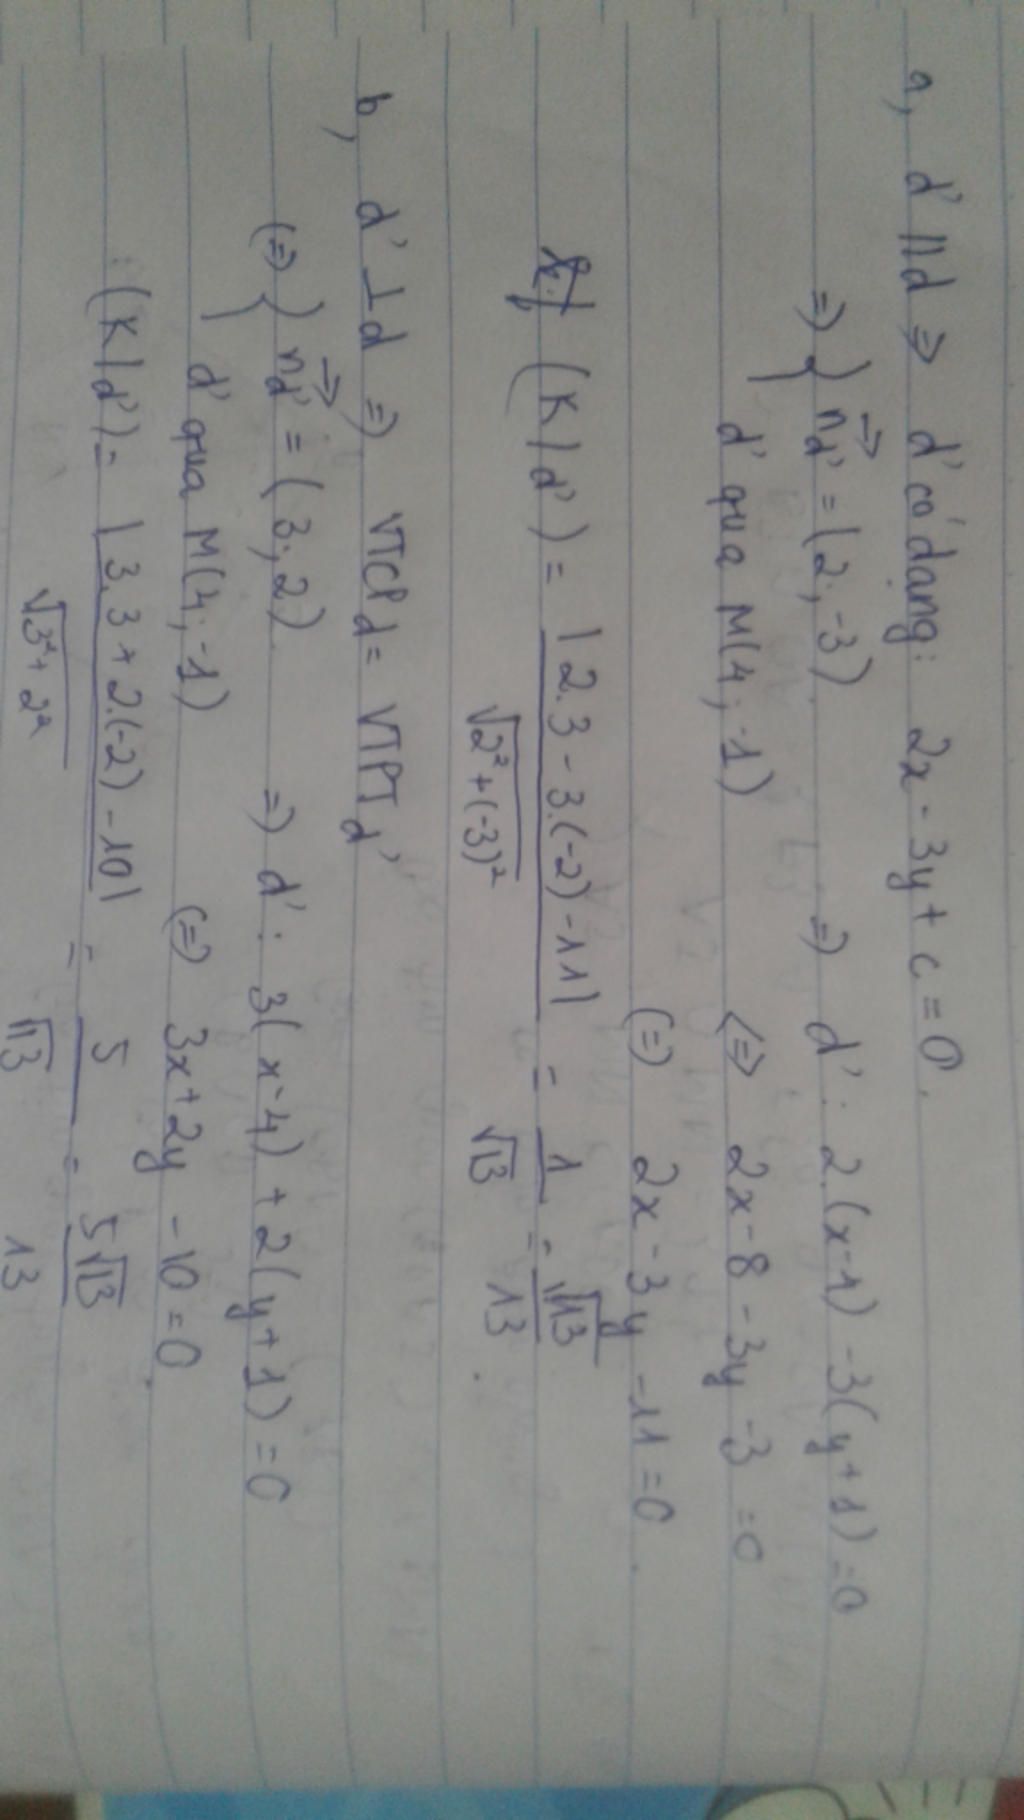 a, d' // d => d' có dạng: 2x - 3y + c = 0.
=> } n⃗d' = (2; -3) => d': 2.(x-1) - 3(y+1) = 0
d' qua M(4; -1) <=> 2x - 8 - 3y - 3 = 0
(=) 2x - 3y - 11 = 0.
(K/d') = |2.3 - 3.(-2) - 11| / √2² + (-3)² = 1/√13 = √13/13.
b, d' ⊥ d => VTCP d = VTPT d'
(=> } n⃗d' = (3; 2) => d': 3(x-4) + 2(y+1) = 0
d' qua M(4; -1) (=) 3x + 2y - 10 = 0.
: (K/d') = |3.3 + 2.(-2) - 10| / √3² + 2² = 5/√13 = 5√13/13